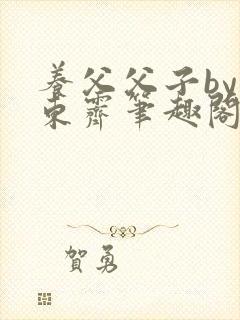 养父父子by
东霁笔趣阁
贺勇